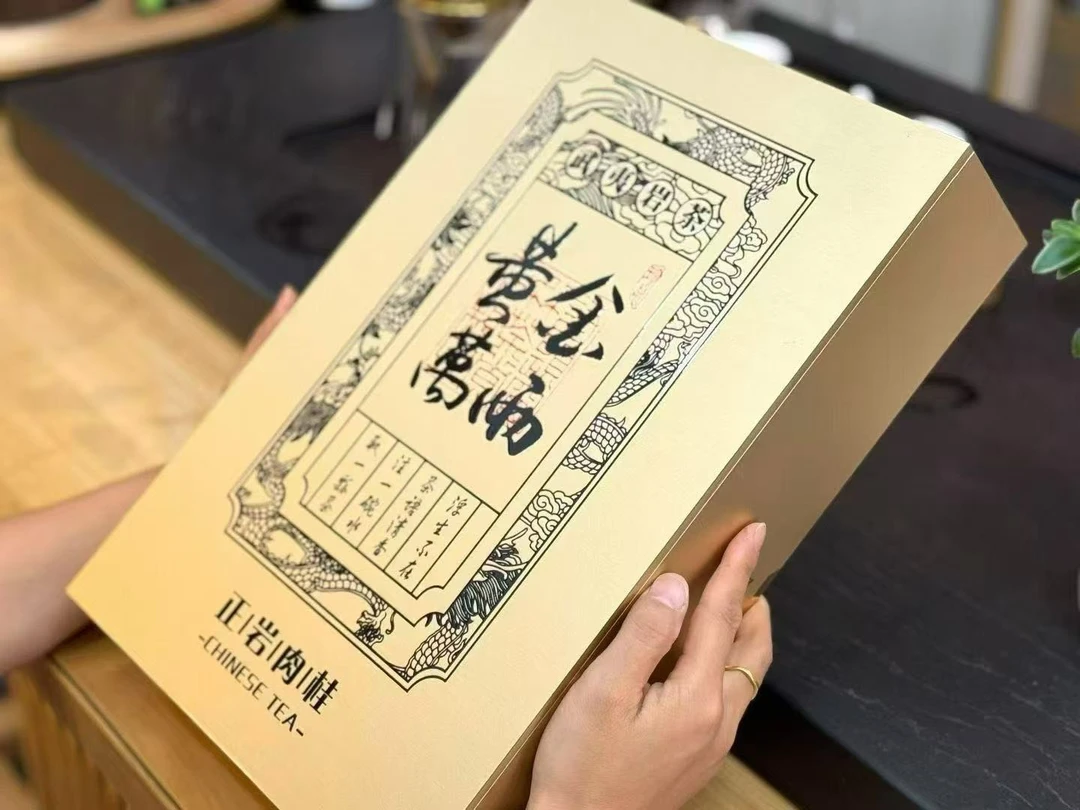 武夷岩茶
黄金
萬兩
取一瓢茶
注一碗水
茶語清香
浮生在
正|岩|肉|桂
-CHINESE TEA-